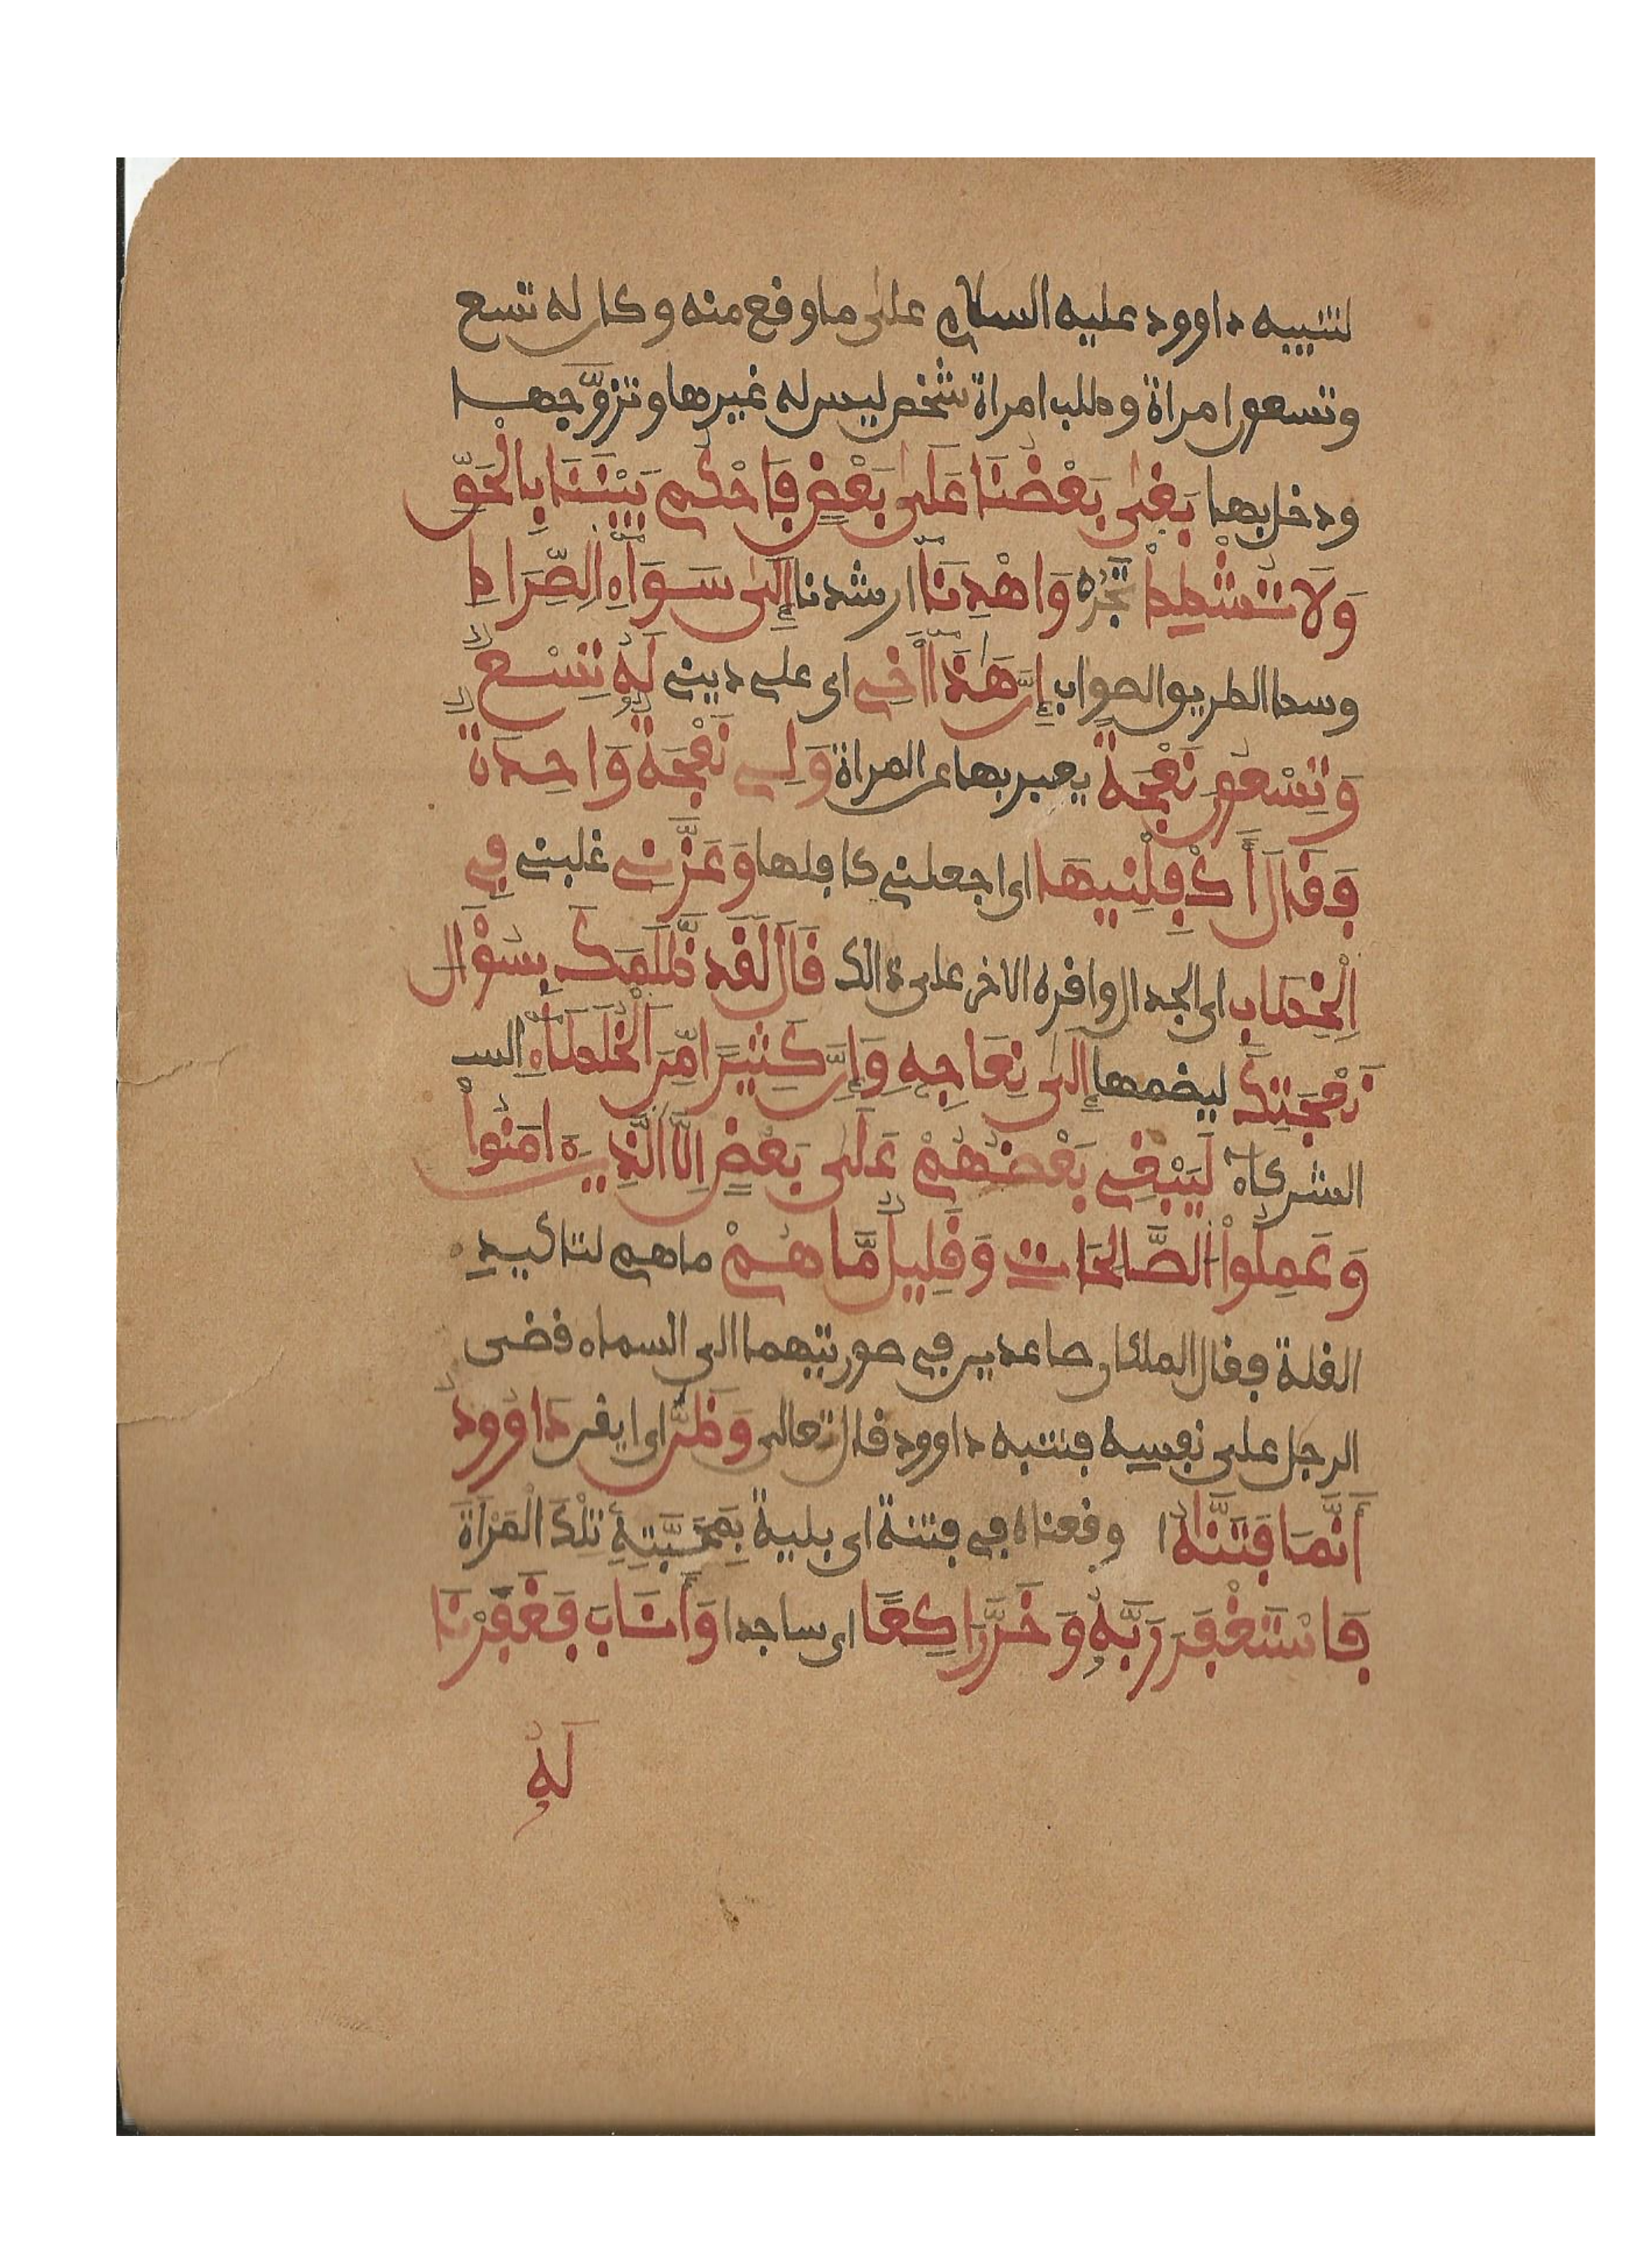 لتنبيه داوود عليه السلام على ما وقع منه وكان له تسع
وتسعون امراة وطلب امراة شخص ليس له غيرها وتزوَّجهـا
ودخل بها بَغىٰ بَعْضُنَا عَلَىٰ بَعْضٍ فَاحْكُم بَيْنَنَا بِالْحَقِّ
وَلَا تُشْطِطْ تَجُرْ وَاهْدِنَآ ارشدنا إِلَىٰ سَوَآءِ الصِّرَاطِ
وسط الطريق الصواب إِنَّ هَٰذَآ أَخِے اى على دينے لَهُۥ تِسْعٌ
وَتِسْعُونَ نَعْجَةً يعبر بها عن المراة وَلِے نَعْجَةٌ وَاحِدَةٌ
فَقَالَ أَكْفِلْنِيهَا اى اجعلنے كافلها وَعَزَّنِے غلبنے فِے
الْخِطَابِ اى الجدال وافره الاخر على ذالك قَالَ لَقَدْ ظَلَمَكَ بِسُؤَالِ
نَعْجَتِكَ ليضمها إِلَىٰ نِعَاجِهِ وَإِنَّ كَثِيرًا مِّنَ الْخُلَطَآءِ الـ
الشركآء لَيَبْغِے بَعْضُهُمْ عَلَىٰ بَعْضٍ اِلَّا الَّذِينَ ءَامَنُواْ
وَعَمِلُواْ الصَّالِحَاتِ وَقَلِيلٌ مَّا هُمْ ما هم لتاكيد
القلة فقال الملكان صاعدين فے صورتيهما الى السماء قضى
الرجل على نفسه فتنبه داوود قال تعالى وَظَنَّ اى ايقن دَاوُودُ
أَنَّمَا فَتَنَّاهُ اوقعناه فے فتنة اى بلية بِمَحَبَّتِهِ تِلْكَ الْمَرْأَةَ
فَاسْتَغْفَرَ رَبَّهُۥ وَخَرَّ رَاكِعًا اى ساجدا وَأَنَابَ فَغَفَرْنَا
لَهُۥ